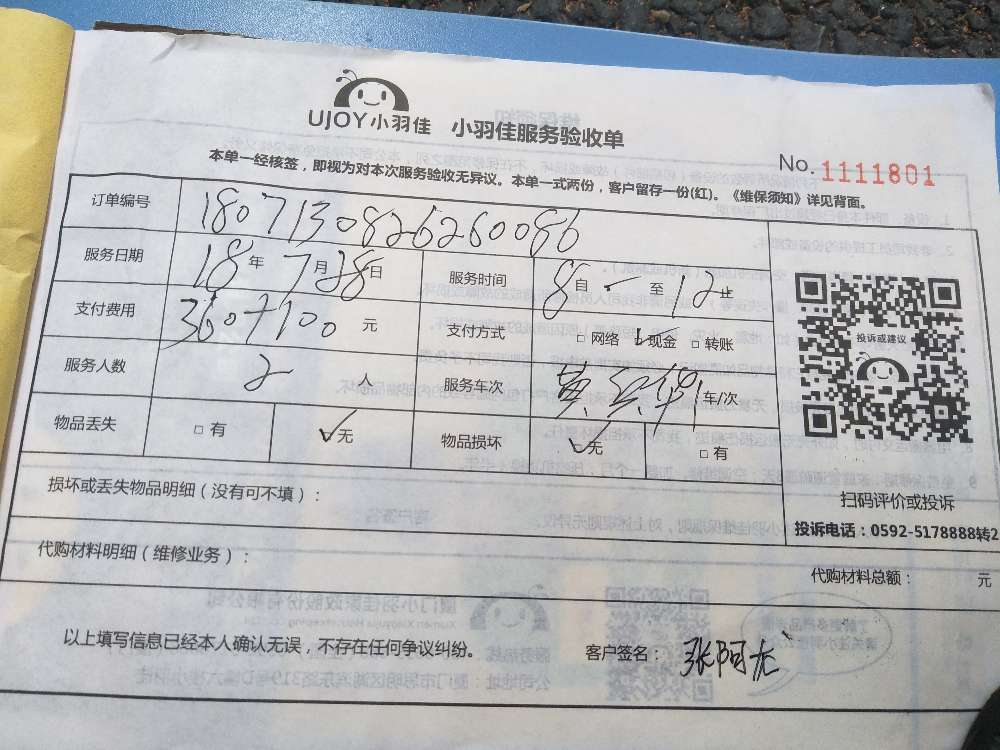 UJOY小羽佳 小羽佳服务验收单
No. 1111801
本单一经核签，即视为对本次服务验收无异议。本单一式两份，客户留存一份(红)。《维保须知》详见背面。
订单编号 1807130826260086
服务日期 18年7月28日 服务时间 8自 至12
支付费用 360+100 元 支付方式 □网络 现金 □转账
服务人数 2 人 服务车次 车/次
物品丢失 □有 ✓无 物品损坏 ✓无 □有
投诉或建议
扫码评价或投诉
投诉电话：0592-5178888转2
损坏或丢失物品明细（没有可不填）：
代购材料明细（维修业务）：
代购材料总额： 元
以上填写信息已经本人确认无误，不存在任何争议纠纷。 客户签名：张阿龙